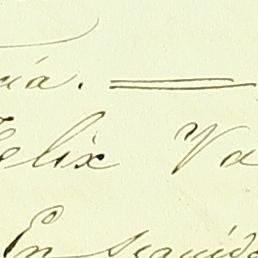 Felix Va
En seguida